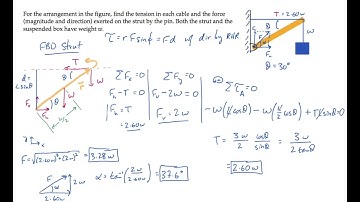 For the arrangement in the figure, find the tension in each cable and the force
(magnitude and direction) exerted on the strut by the pin. Both the strut and the
suspended box have weight w.
T = 2.60w
θ
w
θ = 30°
FBD strut
τ = r F sinφ = Fd w/ dir by RHR
T
d = ℓ sinθ
w
w
θ
F
Fᵥ
Fₕ
ℓ/2
ΣFₓ = 0
Fₕ - T = 0
Fₕ = T
= 2.60w
ΣF_y = 0
Fᵥ - 2w = 0
Fᵥ = 2w
Στ_A = 0
-w(ℓ cosθ) - w(ℓ/2 cosθ) + Tℓ sinθ = 0
T = 3w/2 cosθ/sinθ = 3w/2tanθ
= 2.60w
F = √((2.60w)² + (2w)²) = 3.28w
F
α
2w
2.60w
α = tan⁻¹(2w/2.60w) = 37.6°